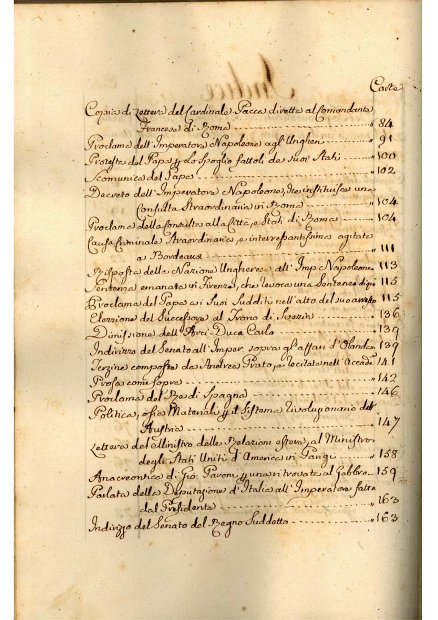 Carte
Copia di Lettera del Cardinale Pacca diretta al Comandante
Francese di Roma 84
Proclama dell'Imperatore Napoleone agl'Ungheri 91
Protesta del Papa p. Lo Spoglio fattoli de suoi Stati 100
Scomunica del Papa 102
Decreto dell'Imperatore Napoleone, che instituisce una
Consulta Straordinaria in Roma 104
Proclama della Consulta alla Città, e Stati di Roma 104
Causa Criminale Straordinaria, e interessantissima agitata
a Bordeaux 111
Risposta della Nazione Ungherese all'Imp. Napoleone 113
Sentenza emanata in Firenze, che revoca una Sentenza di 115
Proclama del Papa ai Suoi Sudditi nell'atto del suo 115
Elezzione del Successore al Trono di Svezia 136
Dimissione dell'Arci Duca Carlo 139
Indirizzo del Senato all'Imper. sopra gl'affari d'Olanda 139
Terzine composte da Andrea Prato, e recitate nell'Accad. 141
Prosa come sopra 142
Proclama del Re di Spagna 146
Politica, ossia Materiale p. il Sistema rivoluzionario dell'
Austria 147
Lettera del Ministro delle Relazioni estere, al Ministro
degli Stati Uniti d'America in Parigi 158
Anacreontica di Gio. Pavoni p. una ritrovata al Gabbro 159
Parlata della Deputazione d'Italia all'Imperatore fatta
dal Presidente 163
Indirizzo del Senato del Regno Suddetto 163